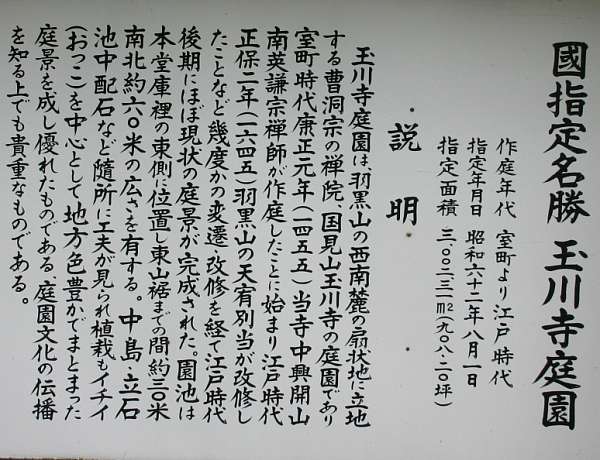 國指定名勝 玉川寺庭園
作庭年代 室町より江戸時代
指定年月日 昭和六十二年八月一日
指定面積 三、〇〇二.三一m2(九〇八.二〇坪)
・説明・
玉川寺庭園は羽黒山の西南麓の扇状地に立地
する曹洞宗の禅院、国見山玉川寺の庭園であり
室町時代康正元年(一四五五)当寺中興開山
南英謙宗禅師が作庭したことに始まり江戸時代
正保二年(一六四五)羽黒山の天宥別当が改修し
たことなど幾度かの変遷・改修を経て江戸時代
後期にほぼ現状の庭景が完成された。園池は
本堂庫裡の東側に位置し東山裾までの間約三〇米
南北約六〇米の広さを有する。中島・立石
池中配石など随所に工夫が見られ植栽もイチイ
(おっこ)を中心として地方色豊かでまとまった
庭景を成し優れたものである。庭園文化の伝播
を知る上でも貴重なものである。